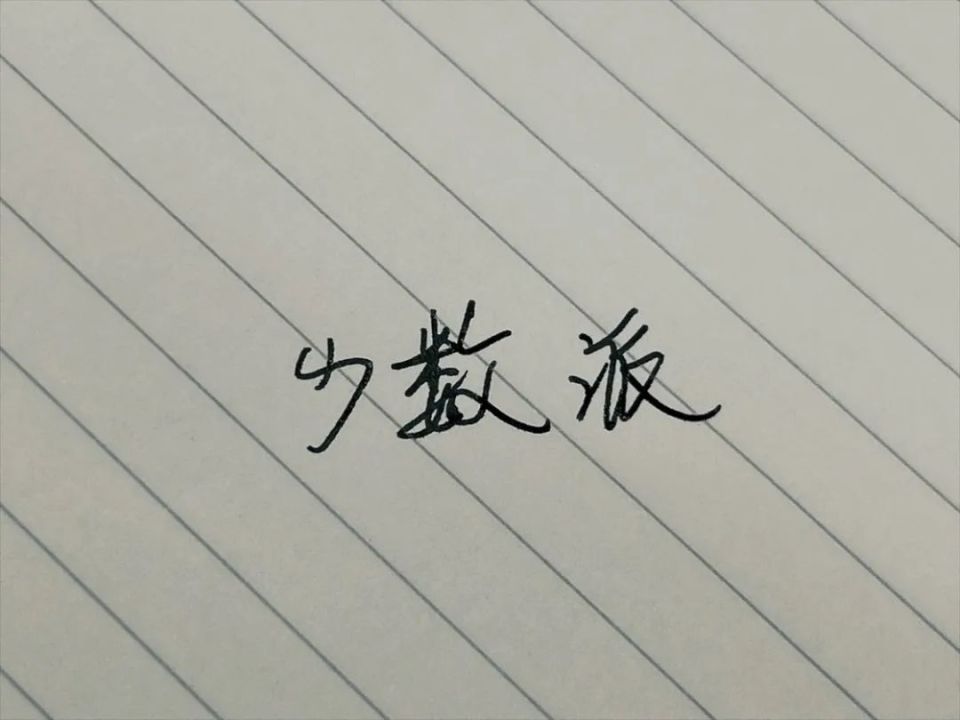 少数派